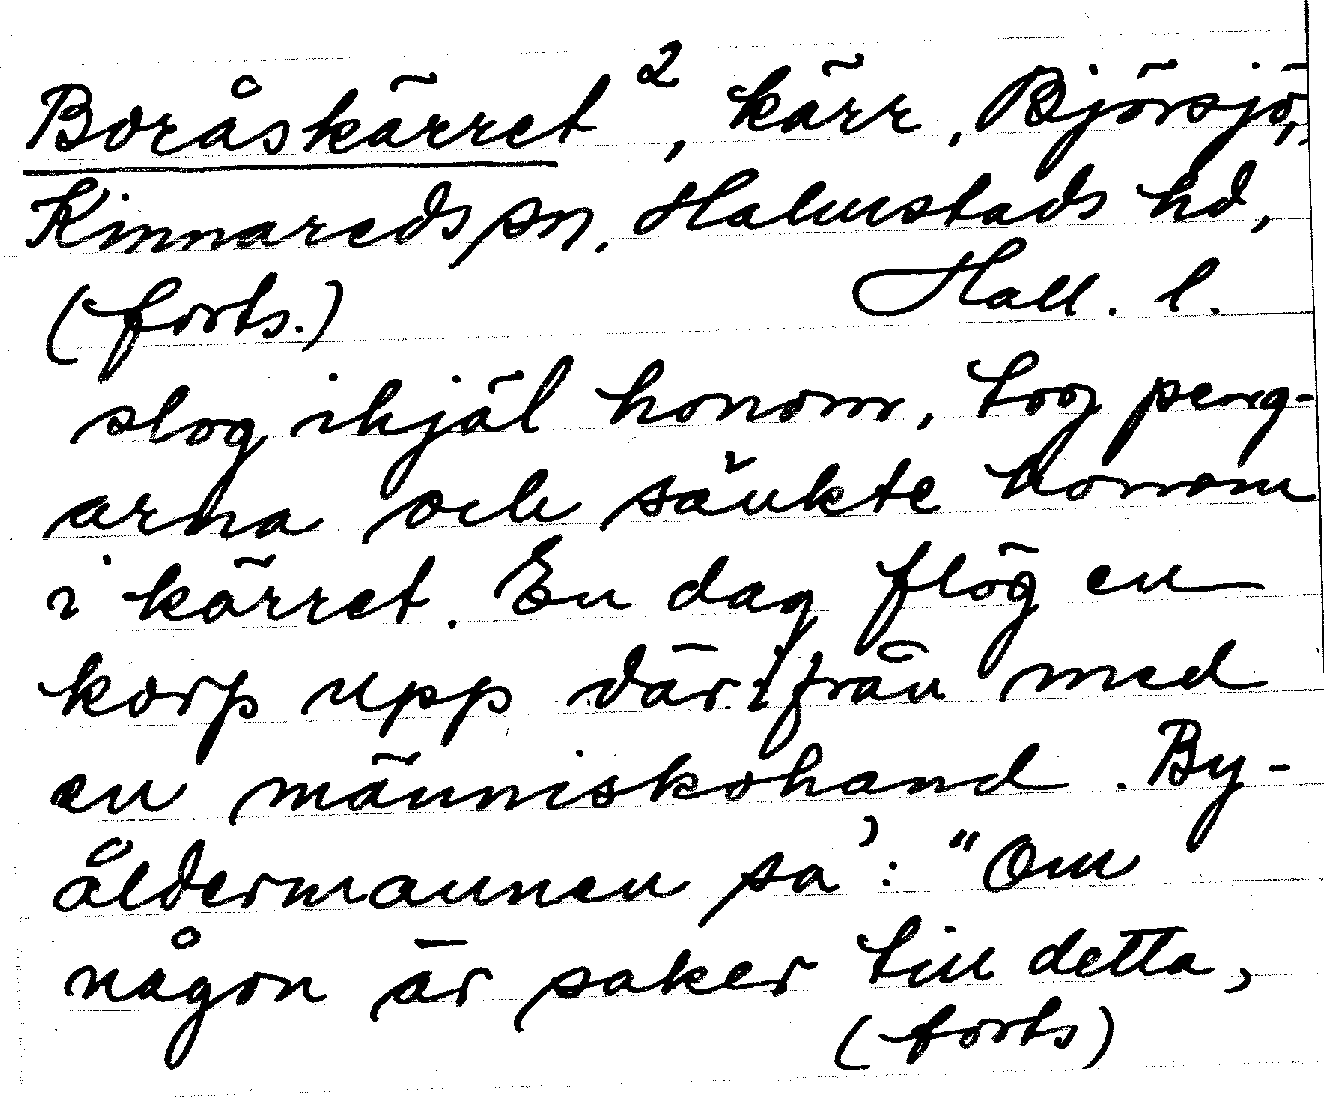 Boråskärret ², kärr, Björsjö,
Kinnareds sn, Halmstads hd,
(forts.) Hall. l.
slog ihjäl honom, tog peng-
arna och sänkte honom
i kärret. En dag flög en
korp upp därifrån med
en människohand. By-
åldermannen sa': "Om
någon är saker till detta,
(forts)